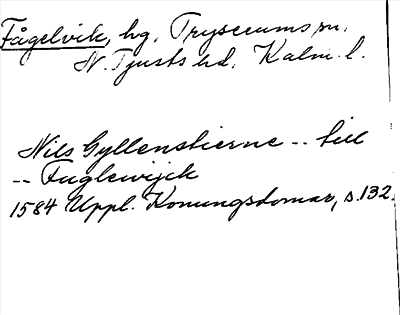 Fågelvik, hg, Tryserums sn,
N. Tjusts hd, Kalm. l.
Nils Gyllenstierne -- till
-- Fuglewijck
1584 Uppl. Konungsdomar, s. 132.